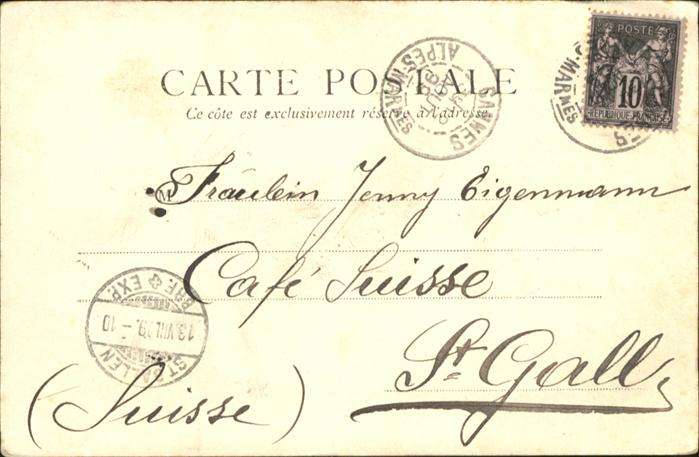 CARTE POSTALE
Ce côte est exclusivement réservé à l'adresse
CANNES
ALPES-MARMES
POSTE
10
REPUBLIQUE FRANÇAISE
S-MARMES
M Fräulein Jenny Eigenmann
Café Suisse
St Gall
(Suisse)
BRF. EXP.
13.VIII.99.-10
ST. GALLEN